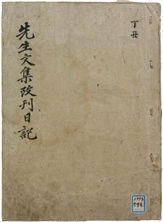 丁丑
先生文集改刊日記